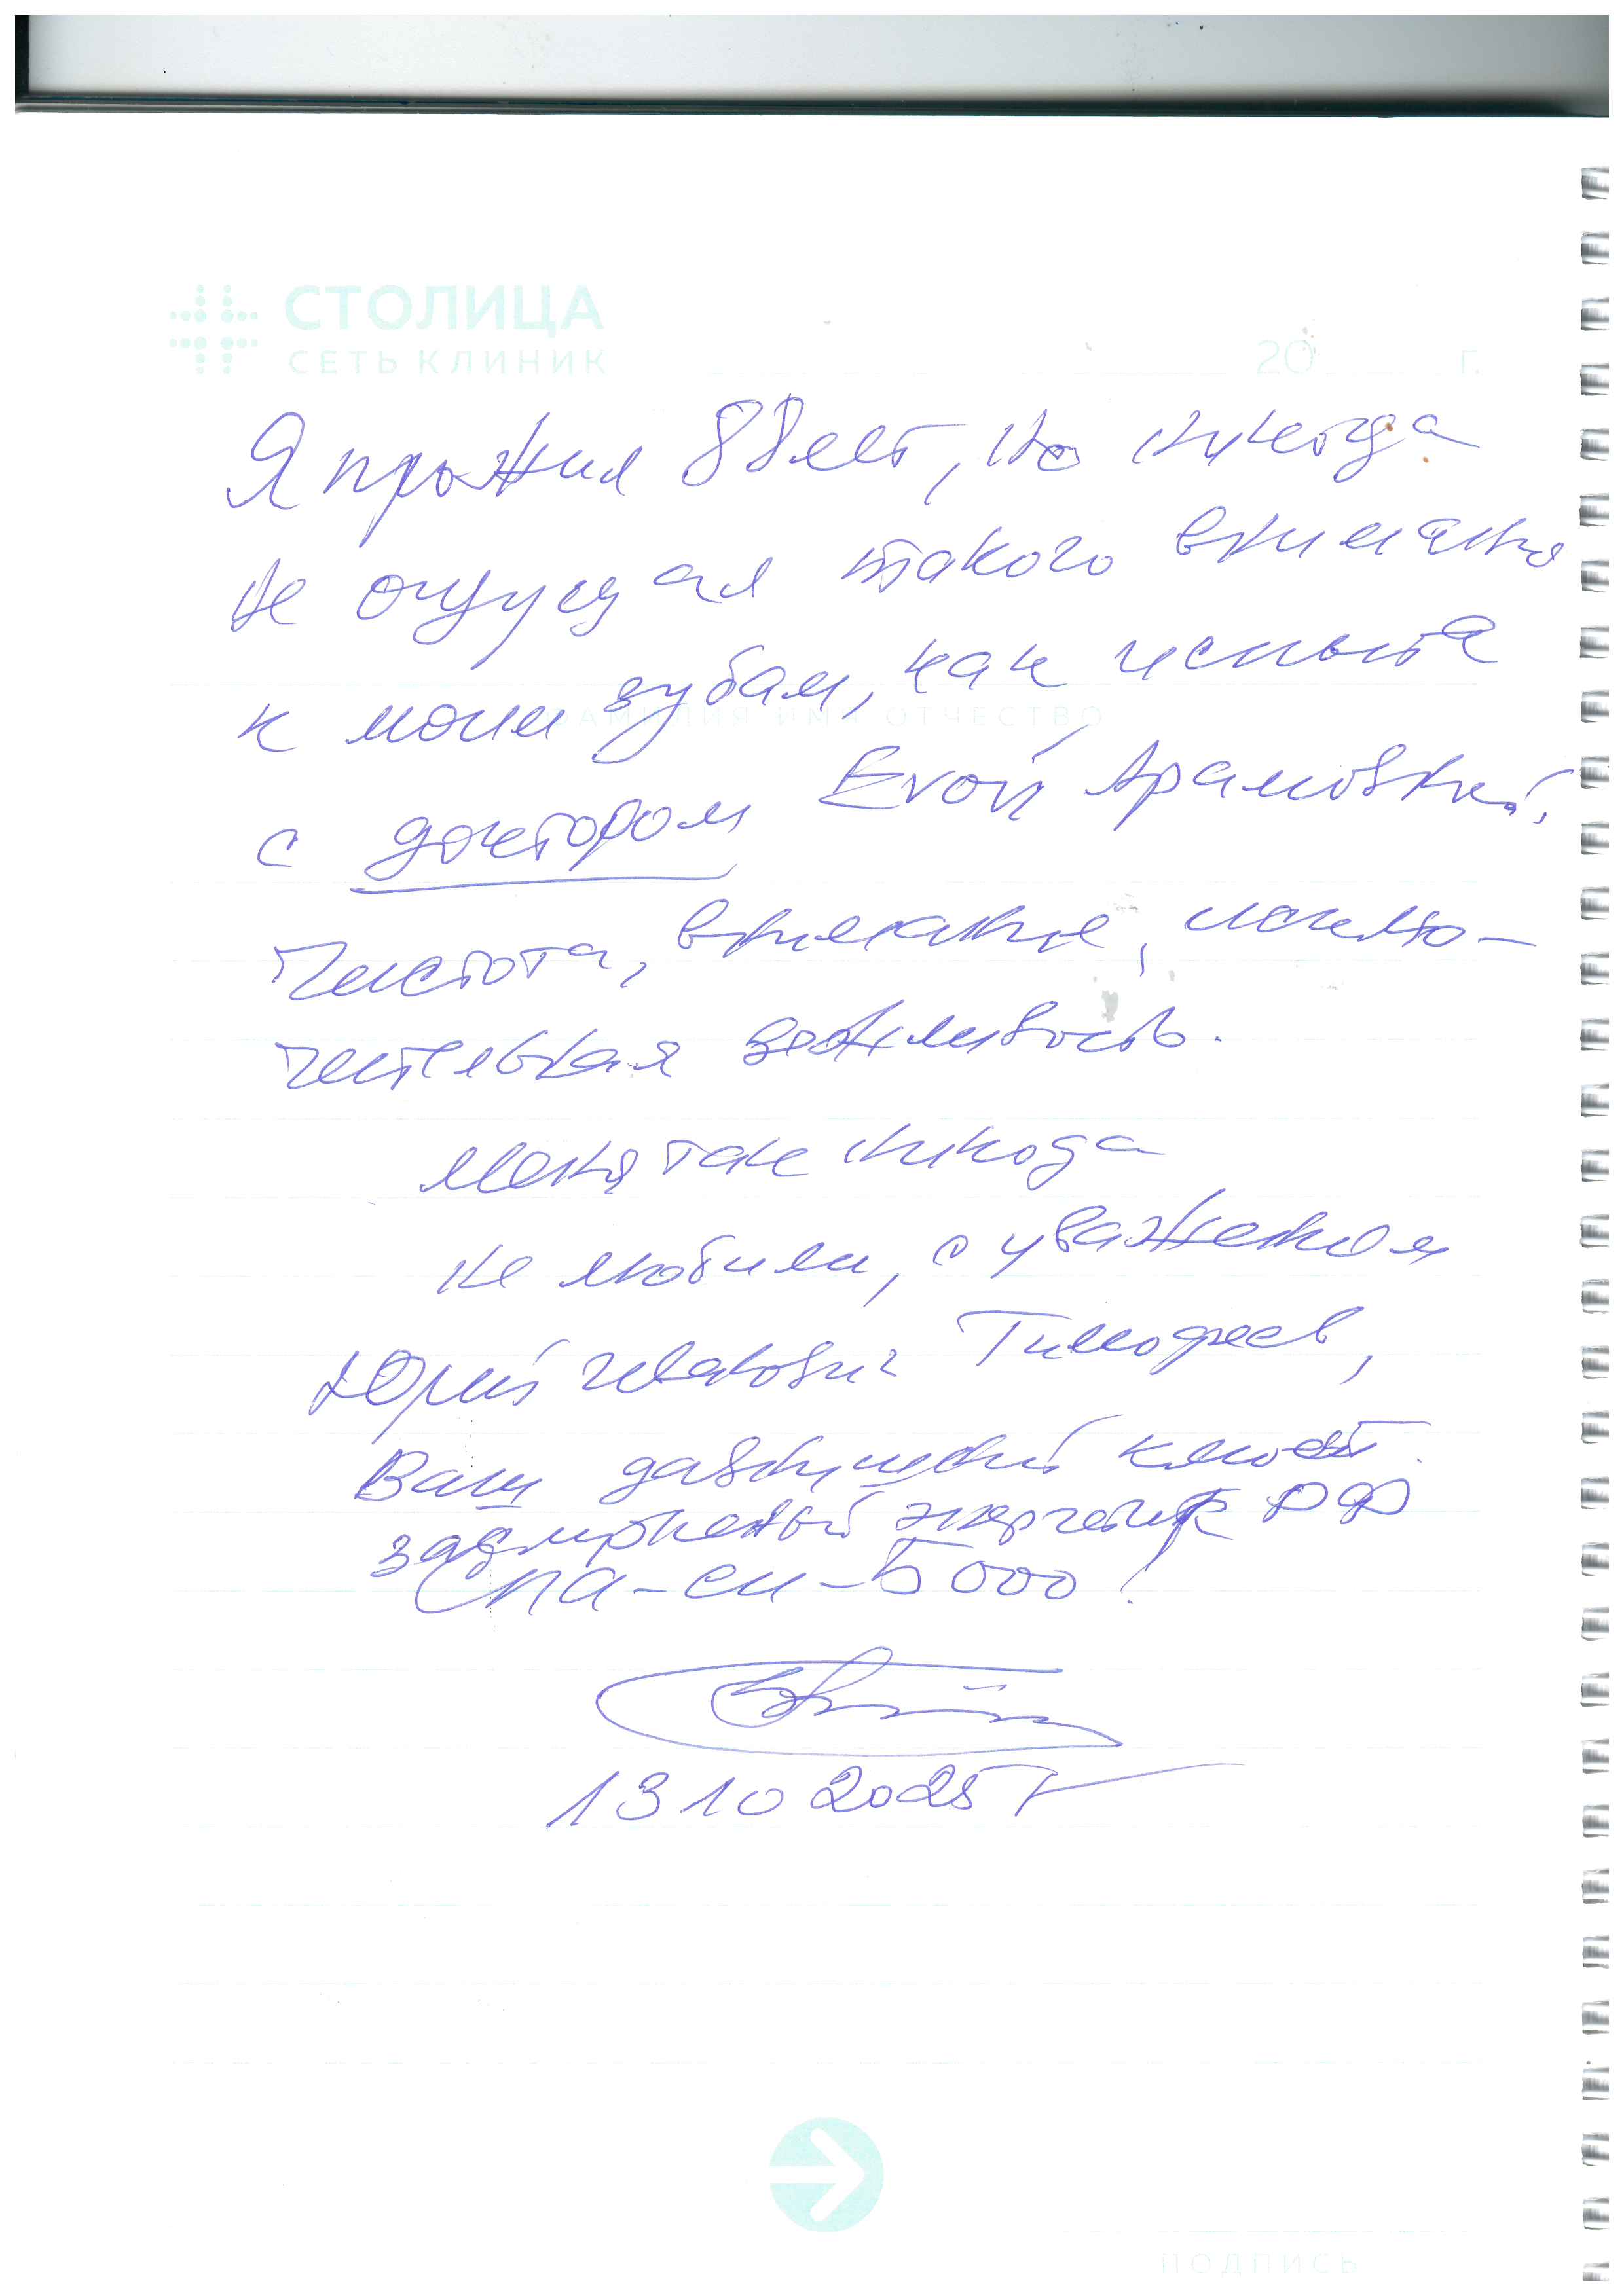 СТОЛИЦА
СЕТЬ КЛИНИК
20 г.
Я прожил 88 лет, но никогда
не ощущал такого внимания
к моим зубам, как испыта
ФАМИЛИЯ ИМЯ ОТЧЕСТВО
с доктором Евой Арамовной.
Чистота, внимание, исклю-
чительная вежливость.
Меня так никогда
не любили, с уважением
Юрий Иванович Тимофеев,
Ваш давнишний клиент.
заслуженный энергетик РФ
Спа-си-Бооо!
13 10 2025 г
ПОДПИСЬ